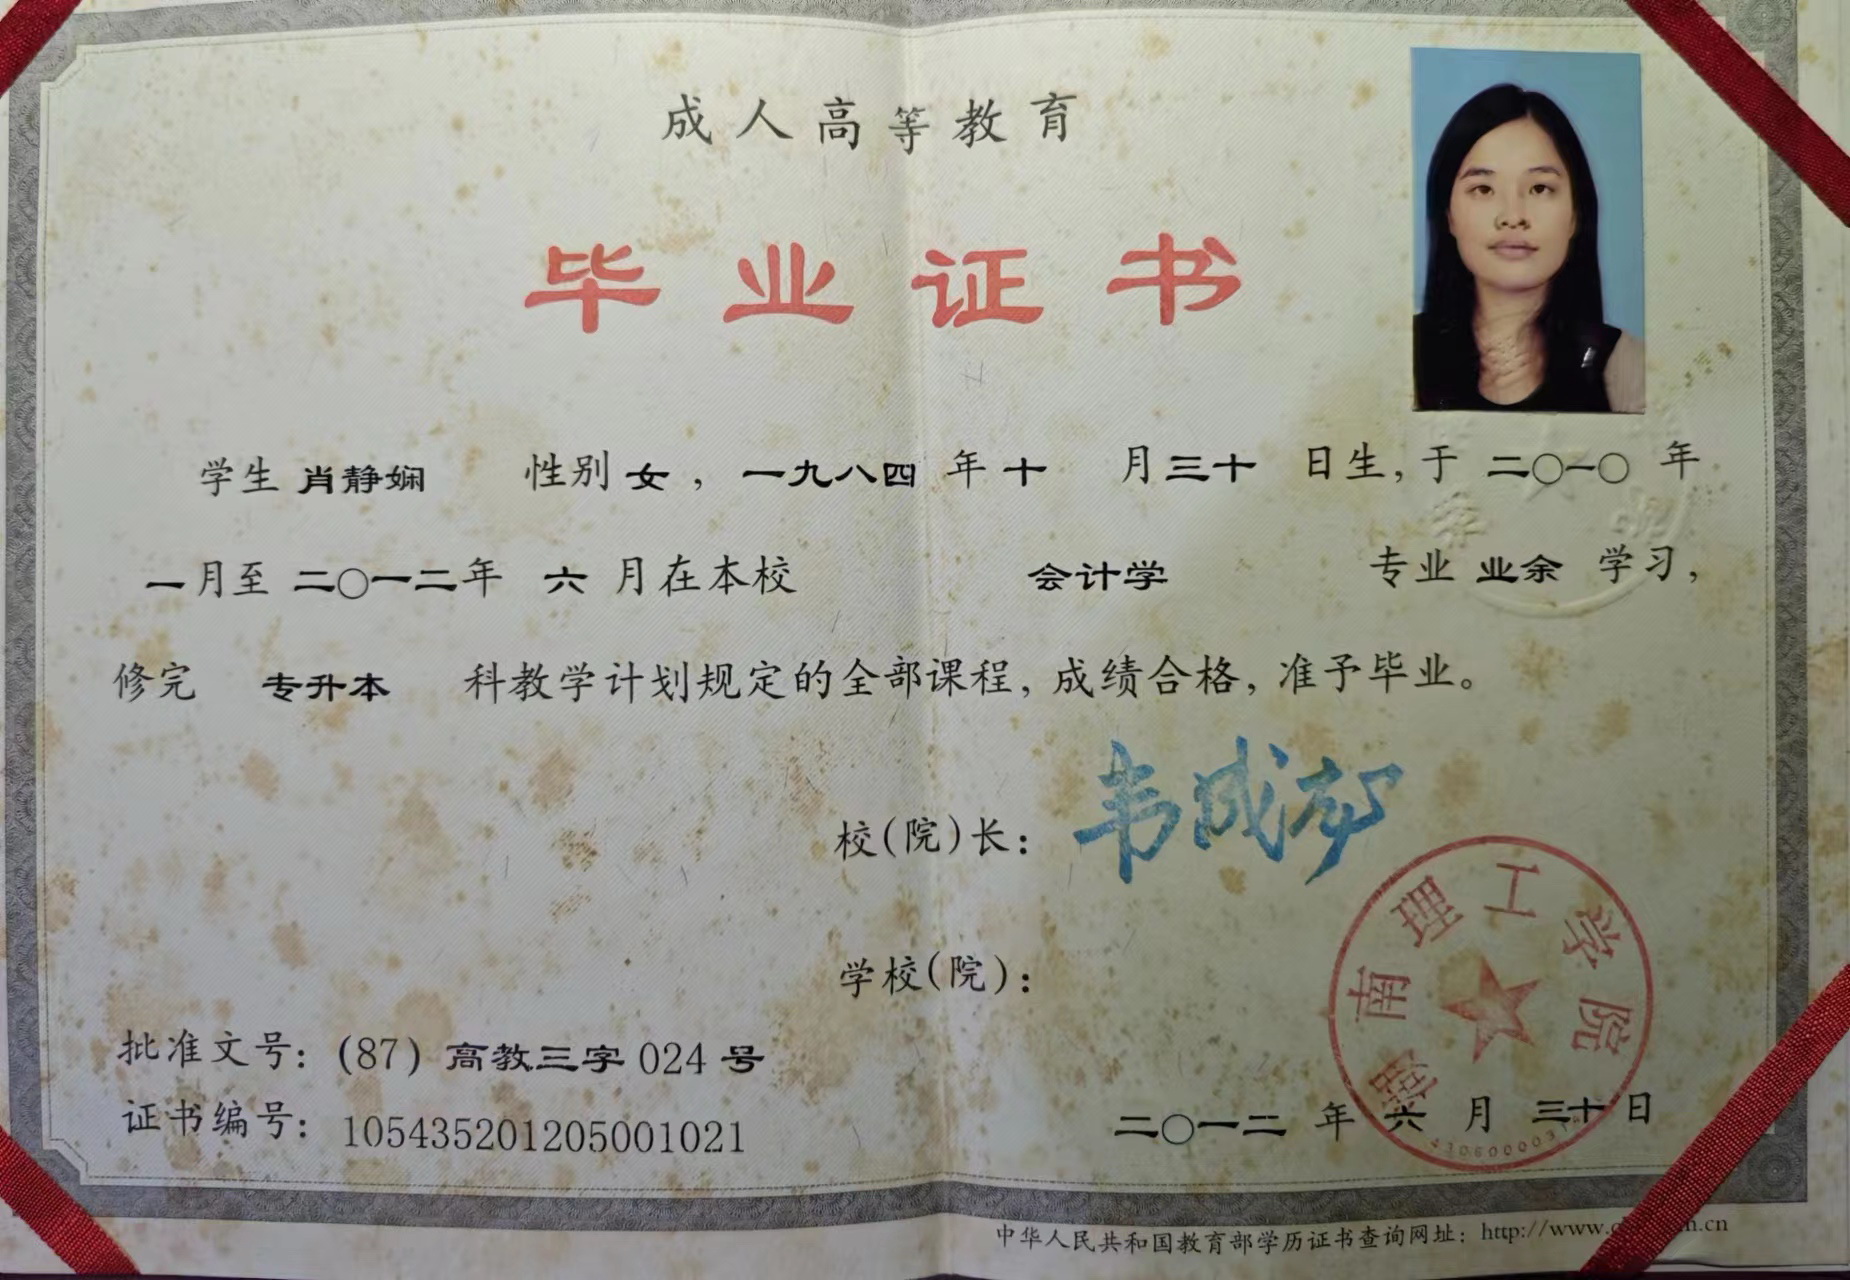 成人高等教育
毕业证书
学生 肖静娴 性别 女，一九八四 年 十 月 三十 日生，于 二〇一〇 年
一 月至 二〇一二 年 六 月在本校 会计学 专业 业余 学习，
修完 专升本 科教学计划规定的全部课程，成绩合格，准予毕业。
校(院)长：
学校(院)：
湖南理工学院
批准文号：(87) 高教三字 024 号
证书编号：105435201205001021
二〇一二 年 六 月 三十 日
中华人民共和国教育部学历证书查询网址：http://www.